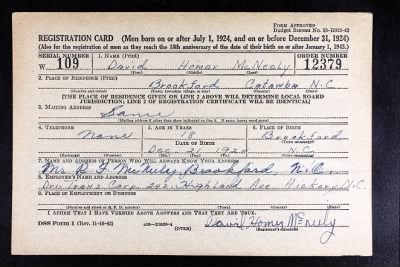 FORM APPROVED
Budget Bureau No. 33-R012-42
REGISTRATION CARD (Men born on or after July 1, 1924, and on or before December 31, 1924)
(Also for the registration of men as they reach the 18th anniversary of the date of their birth on or after January 1, 1943.)
SERIAL NUMBER 1. NAME (Print) ORDER NUMBER
W 109 David Homer McNeely 12379
(First) (Middle) (Last)
2. PLACE OF RESIDENCE (Print)
Brookford Catawba N.C.
(Number and street) (Town) (County) (State)
[THE PLACE OF RESIDENCE GIVEN ON LINE 2 ABOVE WILL DETERMINE LOCAL BOARD
JURISDICTION; LINE 2 OF REGISTRATION CERTIFICATE WILL BE IDENTICAL]
3. MAILING ADDRESS
Same
[Mailing address if other than place indicated on line 2. If same, insert word same]
4. TELEPHONE 5. AGE IN YEARS 6. PLACE OF BIRTH
None 18 Brookford
DATE OF BIRTH
Dec. 21 N.C.
(Exchange) (Number) (Mo.) (Day) (Yr.) (State or country)
7. NAME AND ADDRESS OF PERSON WHO WILL ALWAYS KNOW YOUR ADDRESS
Mr. F. McNeely, Brookford, N.C.
8. EMPLOYER'S NAME AND ADDRESS
Corp. Highland Ave Hickory N.C.
9. PLACE OF EMPLOYMENT OR BUSINESS
(Number and street or R. F. D. number) (Town) (County) (State)
I AFFIRM THAT I HAVE VERIFIED ABOVE ANSWERS AND THAT THEY ARE TRUE.
DSS Form 1 (Rev. 11-16-42) (OVER) David Homer McNeely
(Registrant's signature)